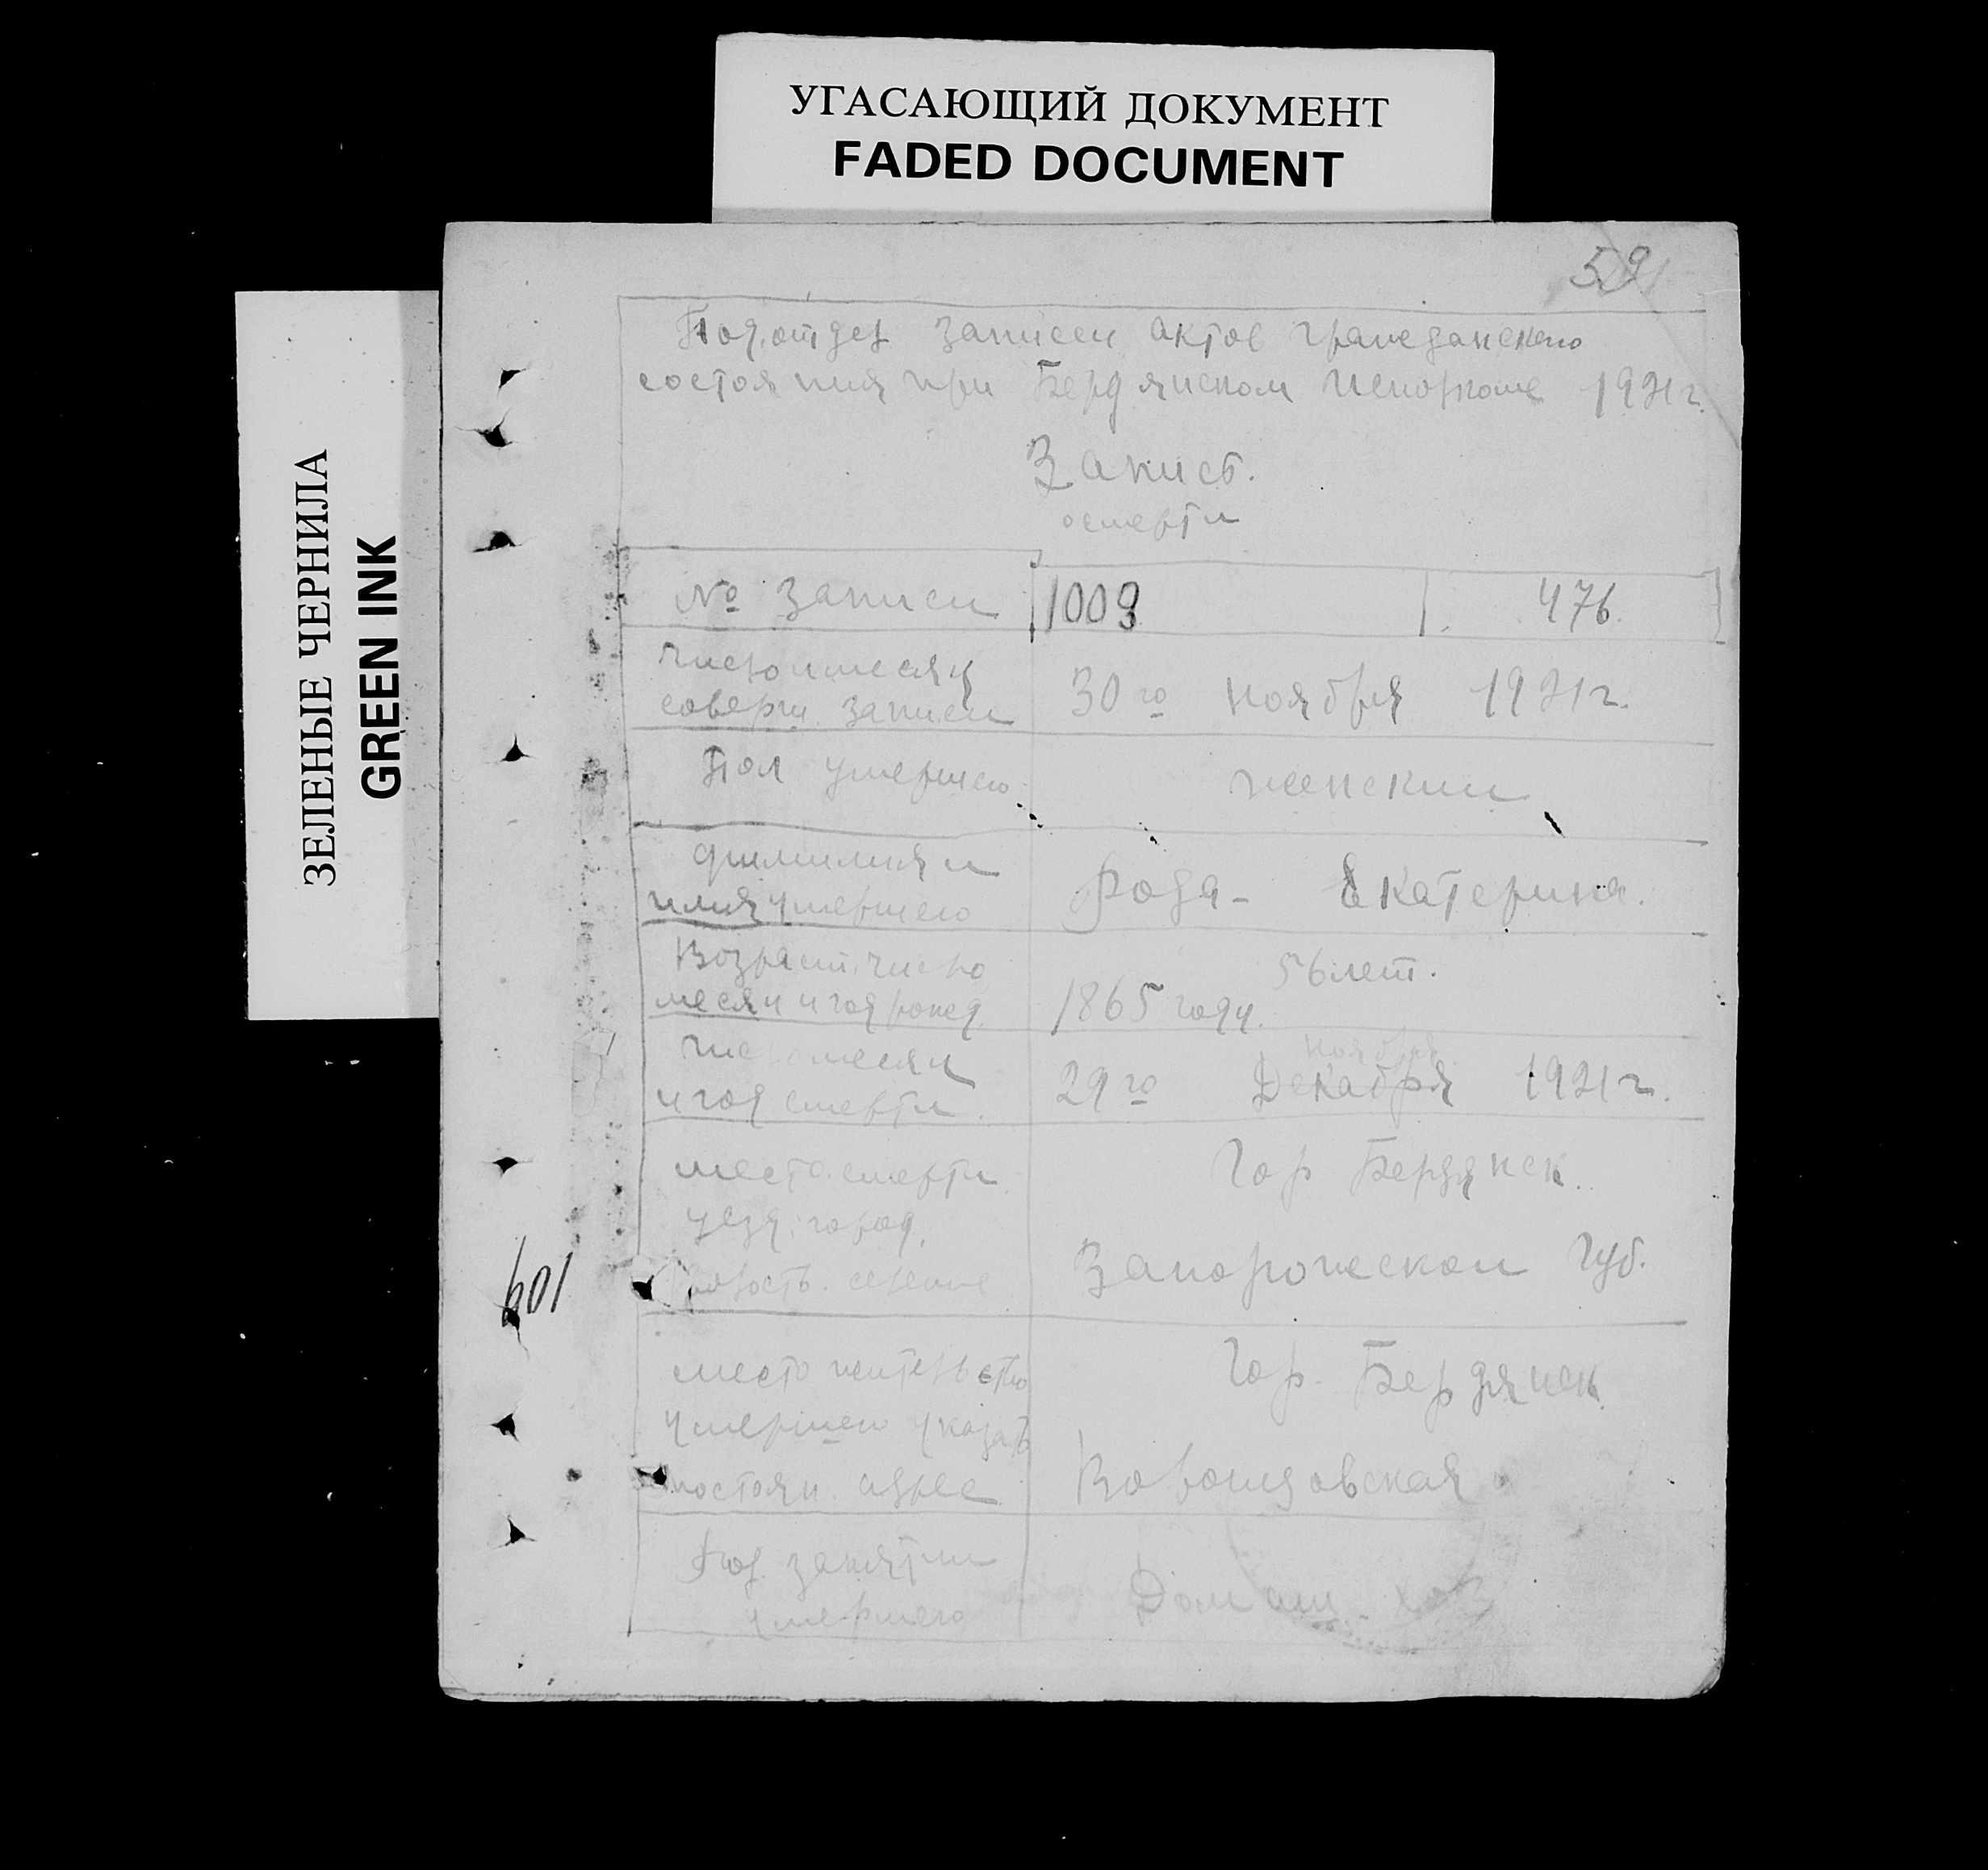 УГАСАЮЩИЙ ДОКУМЕНТ
FADED DOCUMENT
ЗЕЛЕНЫЕ ЧЕРНИЛА
GREEN INK
59
Подотдел записей актов гражданского
состояния при Бердянском Исполкоме 1921 г.
Запись.
о смерти
№ записи 1009 476.
Число и месяц
соверш. записи 30го ноября 1921 г.
Пол умершего женский
фамилия и
имя умершего Рода - Екатерина.
Возраст. число 56 лет.
месяц и год рожд. 1865 году.
Число месяц ноября
и год смерти. 29го Декабря 1921 г.
место смерти Гор Бердянск.
уезд. город.
волость. селение Запорожской Губ.
место жительство Гор. Бердянск.
умершего указать
постоян адрес
601
Род занятий
умершего Домаш. хоз